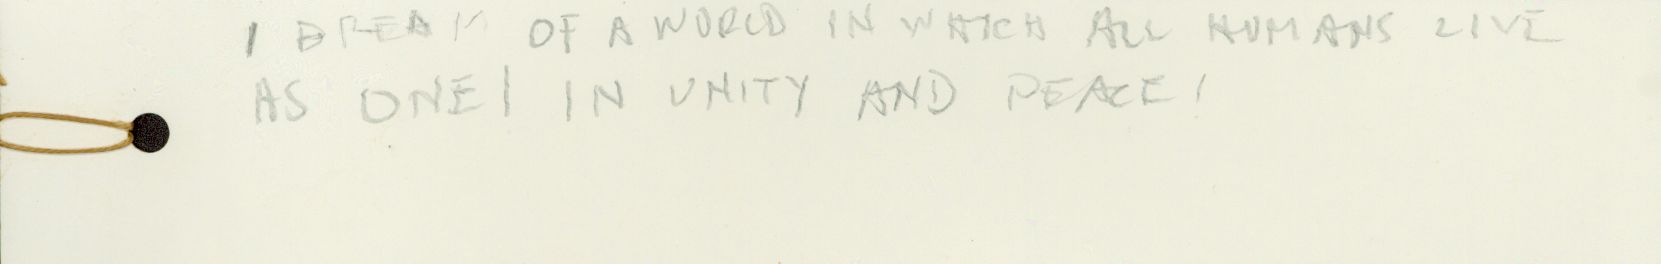 I DREAM OF A WORLD IN WHICH ALL HUMANS LIVE
AS ONE! IN UNITY AND PEACE!